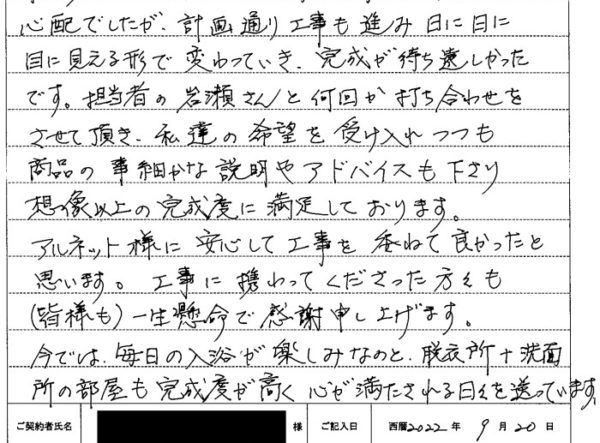 心配でしたが、計画通り工事も進み日に日に
目に見える形で変わっていき、完成が待ち遠しかった
です。担当者の岩瀬さんと何回か打ち合わせを
させて頂き、私達の希望を受け入れつつも
商品の事細かな説明やアドバイスも下さり
想像以上の完成度に満足しております。
アルネット様に安心して工事を委ねて良かったと
思います。工事に携わってくださった方々も
(皆様も)一生懸命で感謝申し上げます。
今では、毎日の入浴が楽しみなのと、脱衣所+洗面
所の部屋も完成度が高く心が満たされる日々を送っています。
ご契約者氏名 様 ご記入日 西暦2022年 9月20日